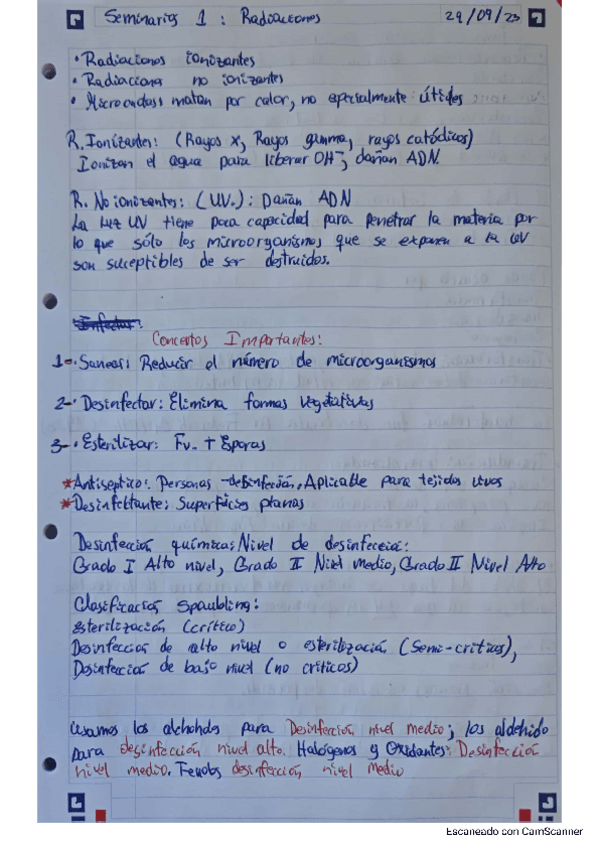 Seminarios 1 : Radiaciones 29/09/23
• Radiaciones ionizantes
• Radiaciones no ionizantes
• Microondas: matan por calor, no especialmente útiles
R. Ionizantes: (Rayos x, Rayos gamma, rayos catódicos)
Ionizan el agua para liberar OH-, dañan ADN.
R. No ionizantes: (UV.): Dañan ADN
La luz UV tiene poca capacidad para penetrar la materia por
lo que sólo los microorganismos que se exponen a la UV
son suceptibles de ser destruidos.
Conceptos Importantes:
1-. Sanear: Reducir el número de microorganismos
2-. Desinfectar: Elimina formas vegetativas
3-. Esterilizar: Fv. + Esporas
*Antiseptico: Personas -desinfección. Aplicable para tejidos vivos
*Desinfectante: Superficies planas
Desinfección química: Nivel de desinfección:
Grado I Alto nivel, Grado II Nivel medio, Grado II Nivel Alto
Clasificación Spaulding:
Esterilización (crítico)
Desinfección de alto nivel o esterilización (Semi-criticos),
Desinfección de bajo nivel (no criticos)
Usamos los alchoholes para Desinfección nivel medio; los aldehido
para desinfección nivel alto. Halógenos y Oxidantes: Desinfección
nivel medio. Fenoles desinfección nivel medio
Escaneado con CamScanner